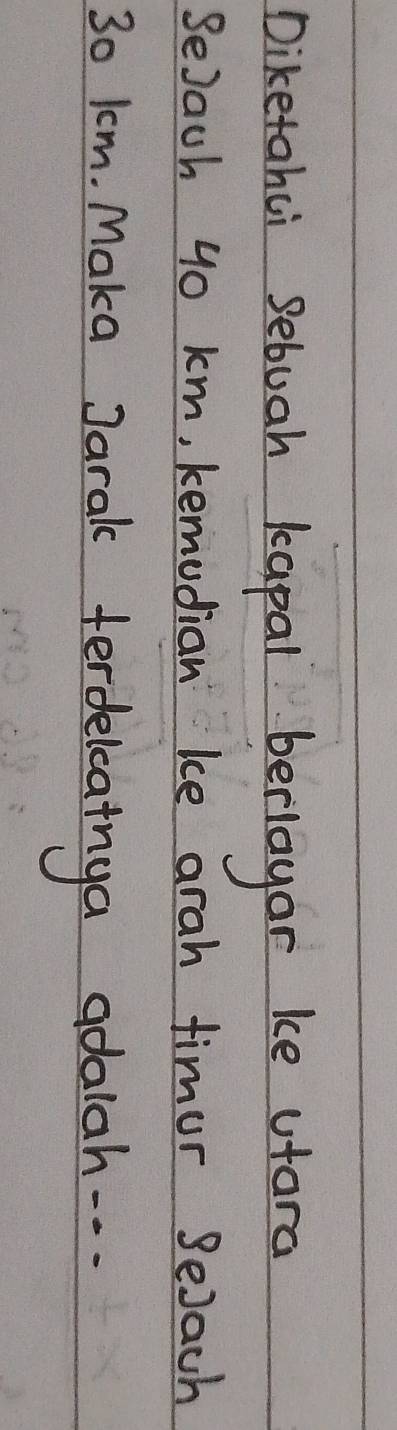 Diketahui Sebuah kapal berlayar ke utara
SeJauh 40 km, kemudian ke arah timur SeJauh
30 km. Maka Jarak terdekatnya adalah...